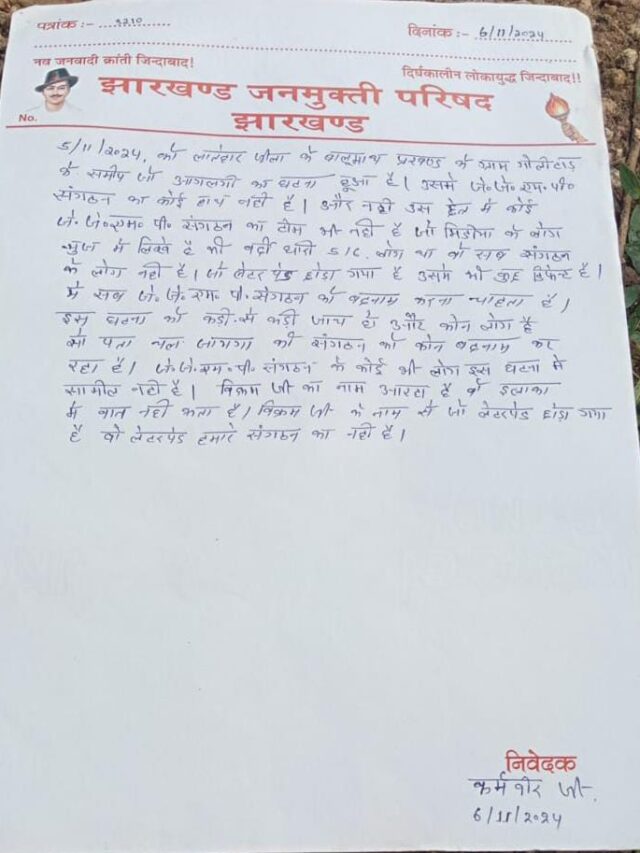 पत्रांक :- १२१० विनांक :- 6/11/2024
नव जनवादी क्रांती जिन्दाबाद! दिर्घकालीन लोकायुद्ध जिन्दाबाद!!
झारखण्ड जनमुक्ती परिषद
झारखण्ड
No.
5/11/2024, को लातेहार जीला के बालुमाथ प्रखण्ड के ग्राम
के समीप जो आगलगी का घटना हुआ है। उसमे जे॰ जे॰ एम॰ पी॰
संगठन का कोई हाथ नहीं है। और नही उस क्षेत्र में कोई
जे॰ जे॰ एम॰ पी॰ संगठन का टीम भी नही है जो मिडीया के लोग
न्युज में लिखे है की वर्दी धारी लोग था वो सब संगठन
के लोग नहीं है। जो लेटर पेड छोडा गया है उसमे भी है।
ये सब जे॰ जे॰ एम॰ पी॰ संगठन को बदनाम करना चाहता है।
इस घटना का कडी-से कडी जाच हो और कौन लोग है
सो पता चल जायगा की संगठन को कौन बदनाम कर
रहा है। जे॰ जे॰ एम॰ पी॰ संगठन के कोई भी लोग इस घटना मे
सामील नही है। विक्रम जी का नाम आरहा है वो इलाका
में बात नही करता है। विक्रम जी के नाम से जो लेटरपेड छोड़ा गया
है वो लेटरपेड हमारे संगठन का नही है।
निवेदक
कर्मवीर जी
6/11/2024